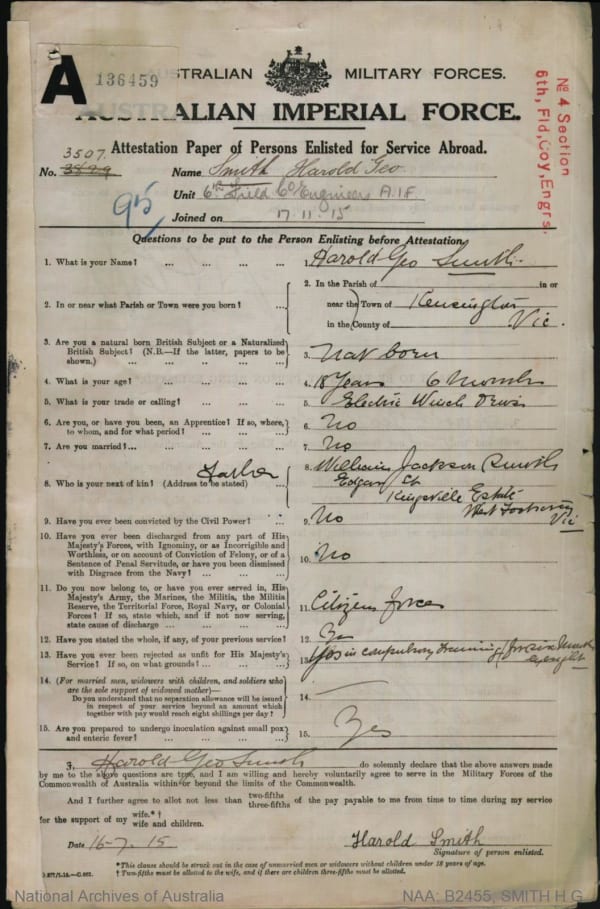 A 136459
AUSTRALIAN MILITARY FORCES.
AUSTRALIAN IMPERIAL FORCE.
No 4 Section
6th, Fld, Coy, Engrs.
Attestation Paper of Persons Enlisted for Service Abroad.
3507.
No. 3829 Name Smith Harold Geo
Unit 6th Field Co Engineers A.I.F.
95
Joined on 17.11.15
Questions to be put to the Person Enlisting before Attestation.
1. What is your Name? ... ... ... ... 1. Harold Geo Smith.
2. In or near what Parish or Town were you born? ...
2. In the Parish of in or
near the Town of Kensington
in the County of Vic.
3. Are you a natural born British Subject or a Naturalised
British Subject? (N.B.—If the latter, papers to be
shown.) ... ... ... ... ... 3. Nat born
4. What is your age? ... ... ... ... 4. 18 Years 6 Months
5. What is your trade or calling? ... ... ... 5. Electric Winch Driver
6. Are you, or have you been, an Apprentice? If so, where,
to whom, and for what period? ... ... ... 6. No
7. Are you married? ... ... ... ... 7. No
Father
8. Who is your next of kin? (Address to be stated) ...
8. William Jackson Smith
Edgar St
Kingsville Estate
West Footscray
Vic
9. Have you ever been convicted by the Civil Power? ... 9. No
10. Have you ever been discharged from any part of His
Majesty's Forces, with Ignominy, or as Incorrigible and
Worthless, or on account of Conviction of Felony, or of a
Sentence of Penal Servitude, or have you been dismissed
with Disgrace from the Navy? ... ... ... 10. No
11. Do you now belong to, or have you ever served in, His
Majesty's Army, the Marines, the Militia, the Militia
Reserve, the Territorial Force, Royal Navy, or Colonial
Forces? If so, state which, and if not now serving,
state cause of discharge ... ... ... ... 11. Citizen forces
12. Have you stated the whole, if any, of your previous service? 12. Yes
13. Have you ever been rejected as unfit for His Majesty's
Service? If so, on what grounds? ... ... ... 13. Yes in compulsory training
14. (For married men, widowers with children, and soldiers who
are the sole support of widowed mother)—
Do you understand that no separation allowance will be issued
in respect of your service beyond an amount which
together with pay would reach eight shillings per day? 14. —
15. Are you prepared to undergo inoculation against small pox
and enteric fever? ... ... ... ... 15. Yes
I, Harold Geo Smith do solemnly declare that the above answers made
by me to the above questions are true, and I am willing and hereby voluntarily agree to serve in the Military Forces of the
Commonwealth of Australia within or beyond the limits of the Commonwealth.
And I further agree to allot not less than two-fifths three-fifths of the pay payable to me from time to time during my service
for the support of my wife.*† wife and children.
Date 16-7.15 Harold Smith
Signature of person enlisted.
*This clause should be struck out in the case of unmarried men or widowers without children under 18 years of age.
† Two-fifths must be allotted to the wife, and if there are children three-fifths must be allotted.
National Archives of Australia NAA: B2455, SMITH H G